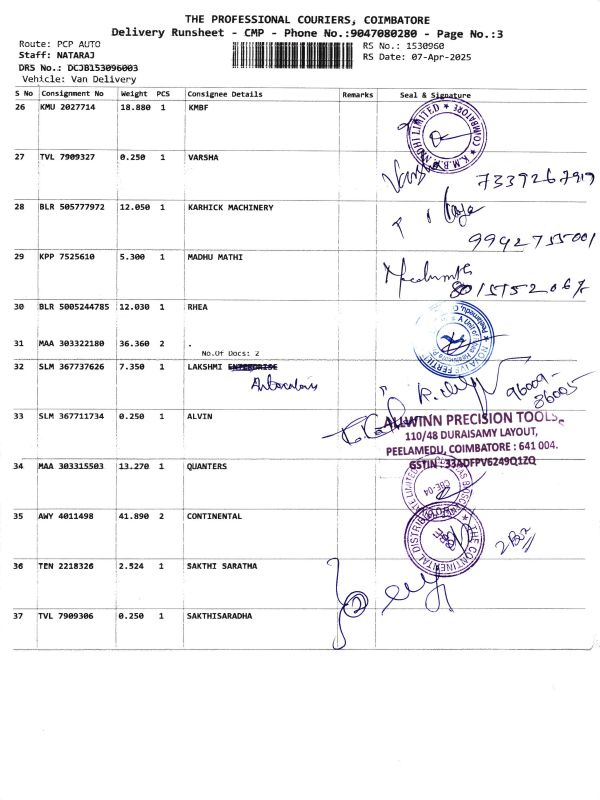 THE PROFESSIONAL COURIERS, COIMBATORE
Delivery Runsheet - CMP - Phone No.:9047080280 - Page No.:3
Route: PCP AUTO
RS No.: 1530960
Staff: NATARAJ
RS Date: 07-Apr-2025
DRS No.: DCJB153096003
Vehicle: Van Delivery
S No Consignment No Weight PCS Consignee Details Remarks Seal & Signature
26 KMU 2027714 18.880 1 KMBF
K.M.B. NIDHI LIMITED ★ COIMBATORE ★
27 TVL 7909327 0.250 1 VARSHA
Varsha
7339267919
28 BLR 505777972 12.050 1 KARHICK MACHINERY
9942755001
29 KPP 7525610 5.300 1 MADHU MATHI
30 BLR 5005244785 12.030 1 RHEA
31 MAA 303322180 36.360 2 .
No.Of Docs: 2
32 SLM 367737626 7.350 1 LAKSHMI ENTERPRISE
96009-
86005
33 SLM 367711734 0.250 1 ALVIN
ALLWINN PRECISION TOOLS,
110/48 DURAISAMY LAYOUT,
PEELAMEDU, COIMBATORE : 641 004.
GSTIN : 33ADFPV6249Q1ZQ
34 MAA 303315503 13.270 1 QUANTERS
CBE-04
35 AWY 4011498 41.890 2 CONTINENTAL
THE CONTINENTAL DISTRIBUTORS
CBE
2 Box
36 TEN 2218326 2.524 1 SAKTHI SARATHA
2
37 TVL 7909306 0.250 1 SAKTHISARADHA